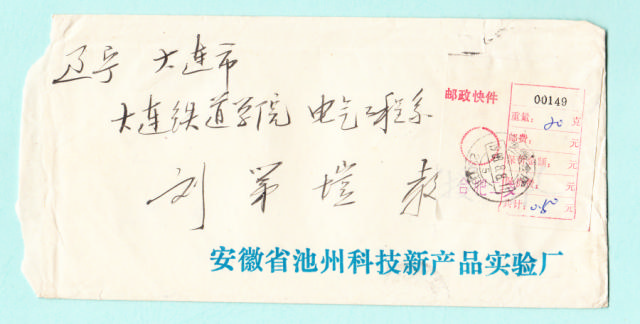 辽宁 大连市
大连铁道学院 电气工程系
刘
邮政快件
00149
重量: 20 克
邮费: 元
元
元
共计: 0.50 元
安徽省池州科技新产品实验厂